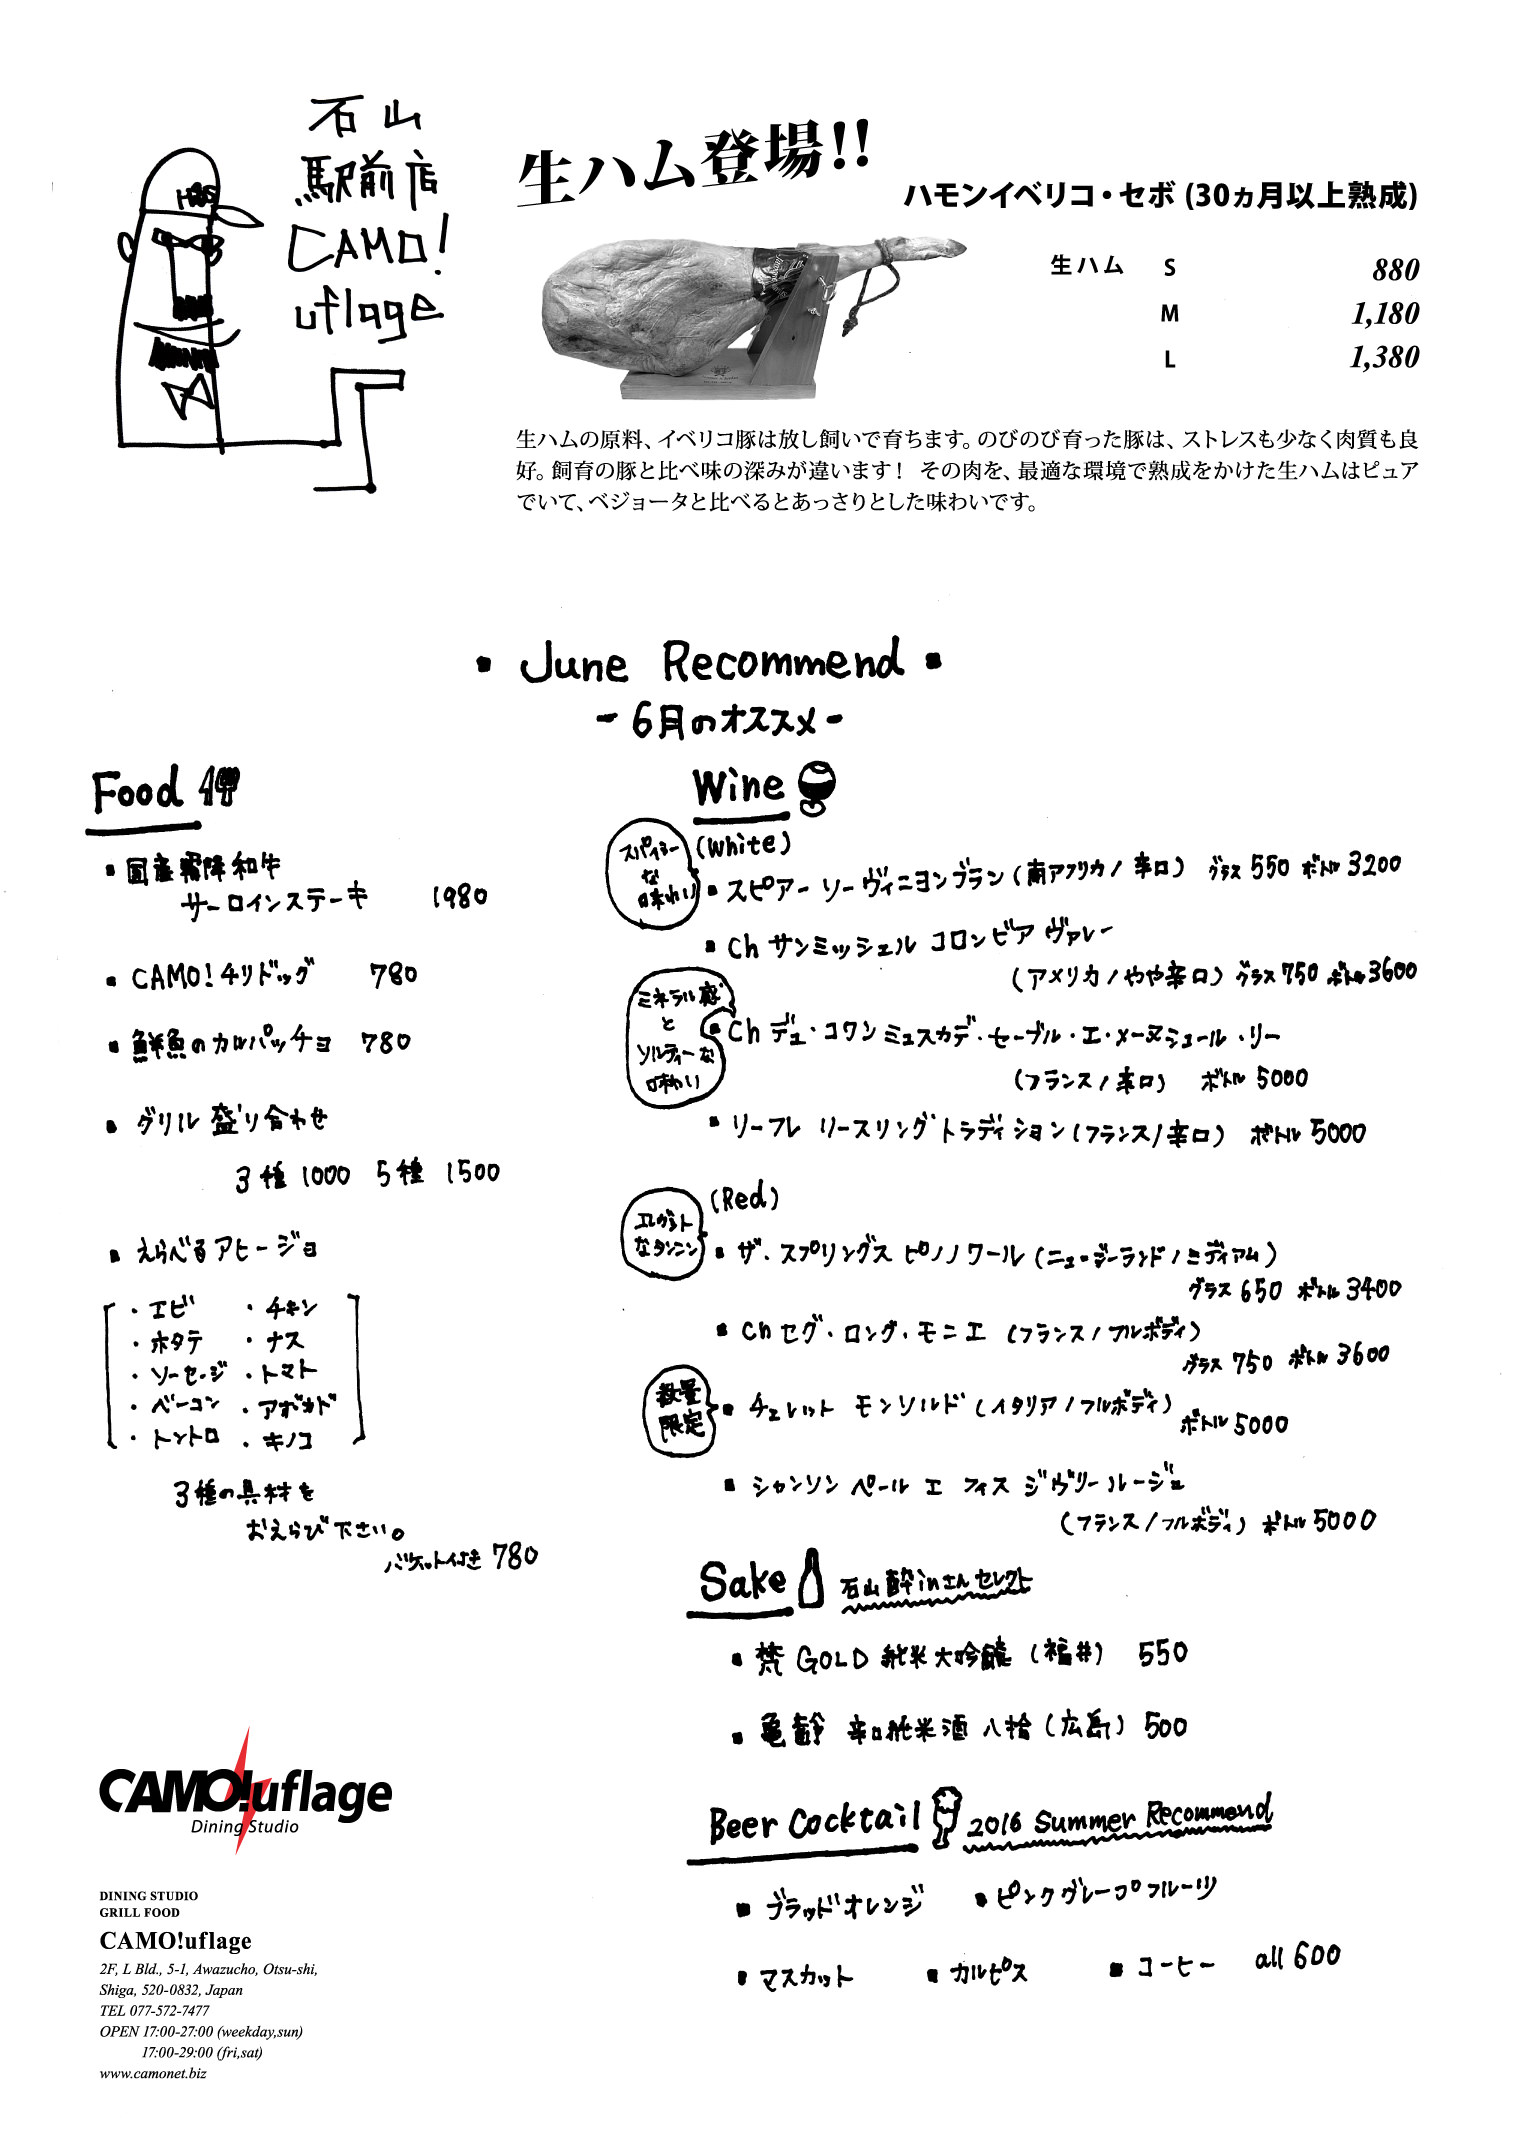 石山
駅前店
CAMO!
uflage
生ハム登場!!
ハモンイベリコ・セボ (30ヵ月以上熟成)
生ハム S 880
M 1,180
L 1,380
生ハムの原料、イベリコ豚は放し飼いで育ちます。のびのび育った豚は、ストレスも少なく肉質も良
好。飼育の豚と比べ味の深みが違います！ その肉を、最適な環境で熟成をかけた生ハムはピュア
でいて、ベジョータと比べるとあっさりとした味わいです。
June Recommend
-6月のオススメ-
Food
国産霜降和牛
サーロインステーキ 1980
CAMO!チリドッグ 780
鮮魚のカルパッチョ 780
グリル盛り合わせ
3種 1000 5種 1500
えらべるアヒージョ
・エビ ・チキン
・ホタテ ・ナス
・ソーセージ ・トマト
・ベーコン ・アボカド
・トントロ ・キノコ
3種の具材を
おえらび下さい。
バケット付き 780
Wine
(White)
スパイシー
な
味わい
スピアー ソーヴィニヨンブラン (南アフリカ/辛口) グラス 550 ボトル 3200
Ch サンミッシェル コロンビア ヴァレー
(アメリカ/やや辛口) グラス 750 ボトル 3600
ミネラル感
と
ソルティーな
味わい
Ch デュ・コワン ミュスカデ・セーブル・エ・メーヌ シュール・リー
(フランス/辛口) ボトル 5000
リーフレ リースリング トラディション (フランス/辛口) ボトル 5000
(Red)
エレガント
なタンニン
ザ・スプリングス ピノノワール (ニュージーランド/ミディアム)
グラス 650 ボトル 3400
Ch セグ・ロング・モニエ (フランス/フルボディ)
グラス 750 ボトル 3600
数量
限定
チェレット モンソルド (イタリア/フルボディ)
ボトル 5000
シャンソン ペール エ フィス ジヴリー ルージュ
(フランス/フルボディ) ボトル 5000
Sake 石山酔inさんセレクト
梵 GOLD 純米大吟醸 (福井) 550
亀齢 辛口純米酒 八拾 (広島) 500
Beer Cocktail 2016 Summer Recommend
ブラッドオレンジ ピンクグレープフルーツ
マスカット カルピス コーヒー all 600
CAMO!uflage
Dining Studio
DINING STUDIO
GRILL FOOD
CAMO!uflage
2F, L Bld., 5-1, Awazucho, Otsu-shi,
Shiga, 520-0832, Japan
TEL 077-572-7477
OPEN 17:00-27:00 (weekday,sun)
17:00-29:00 (fri,sat)
www.camonet.biz